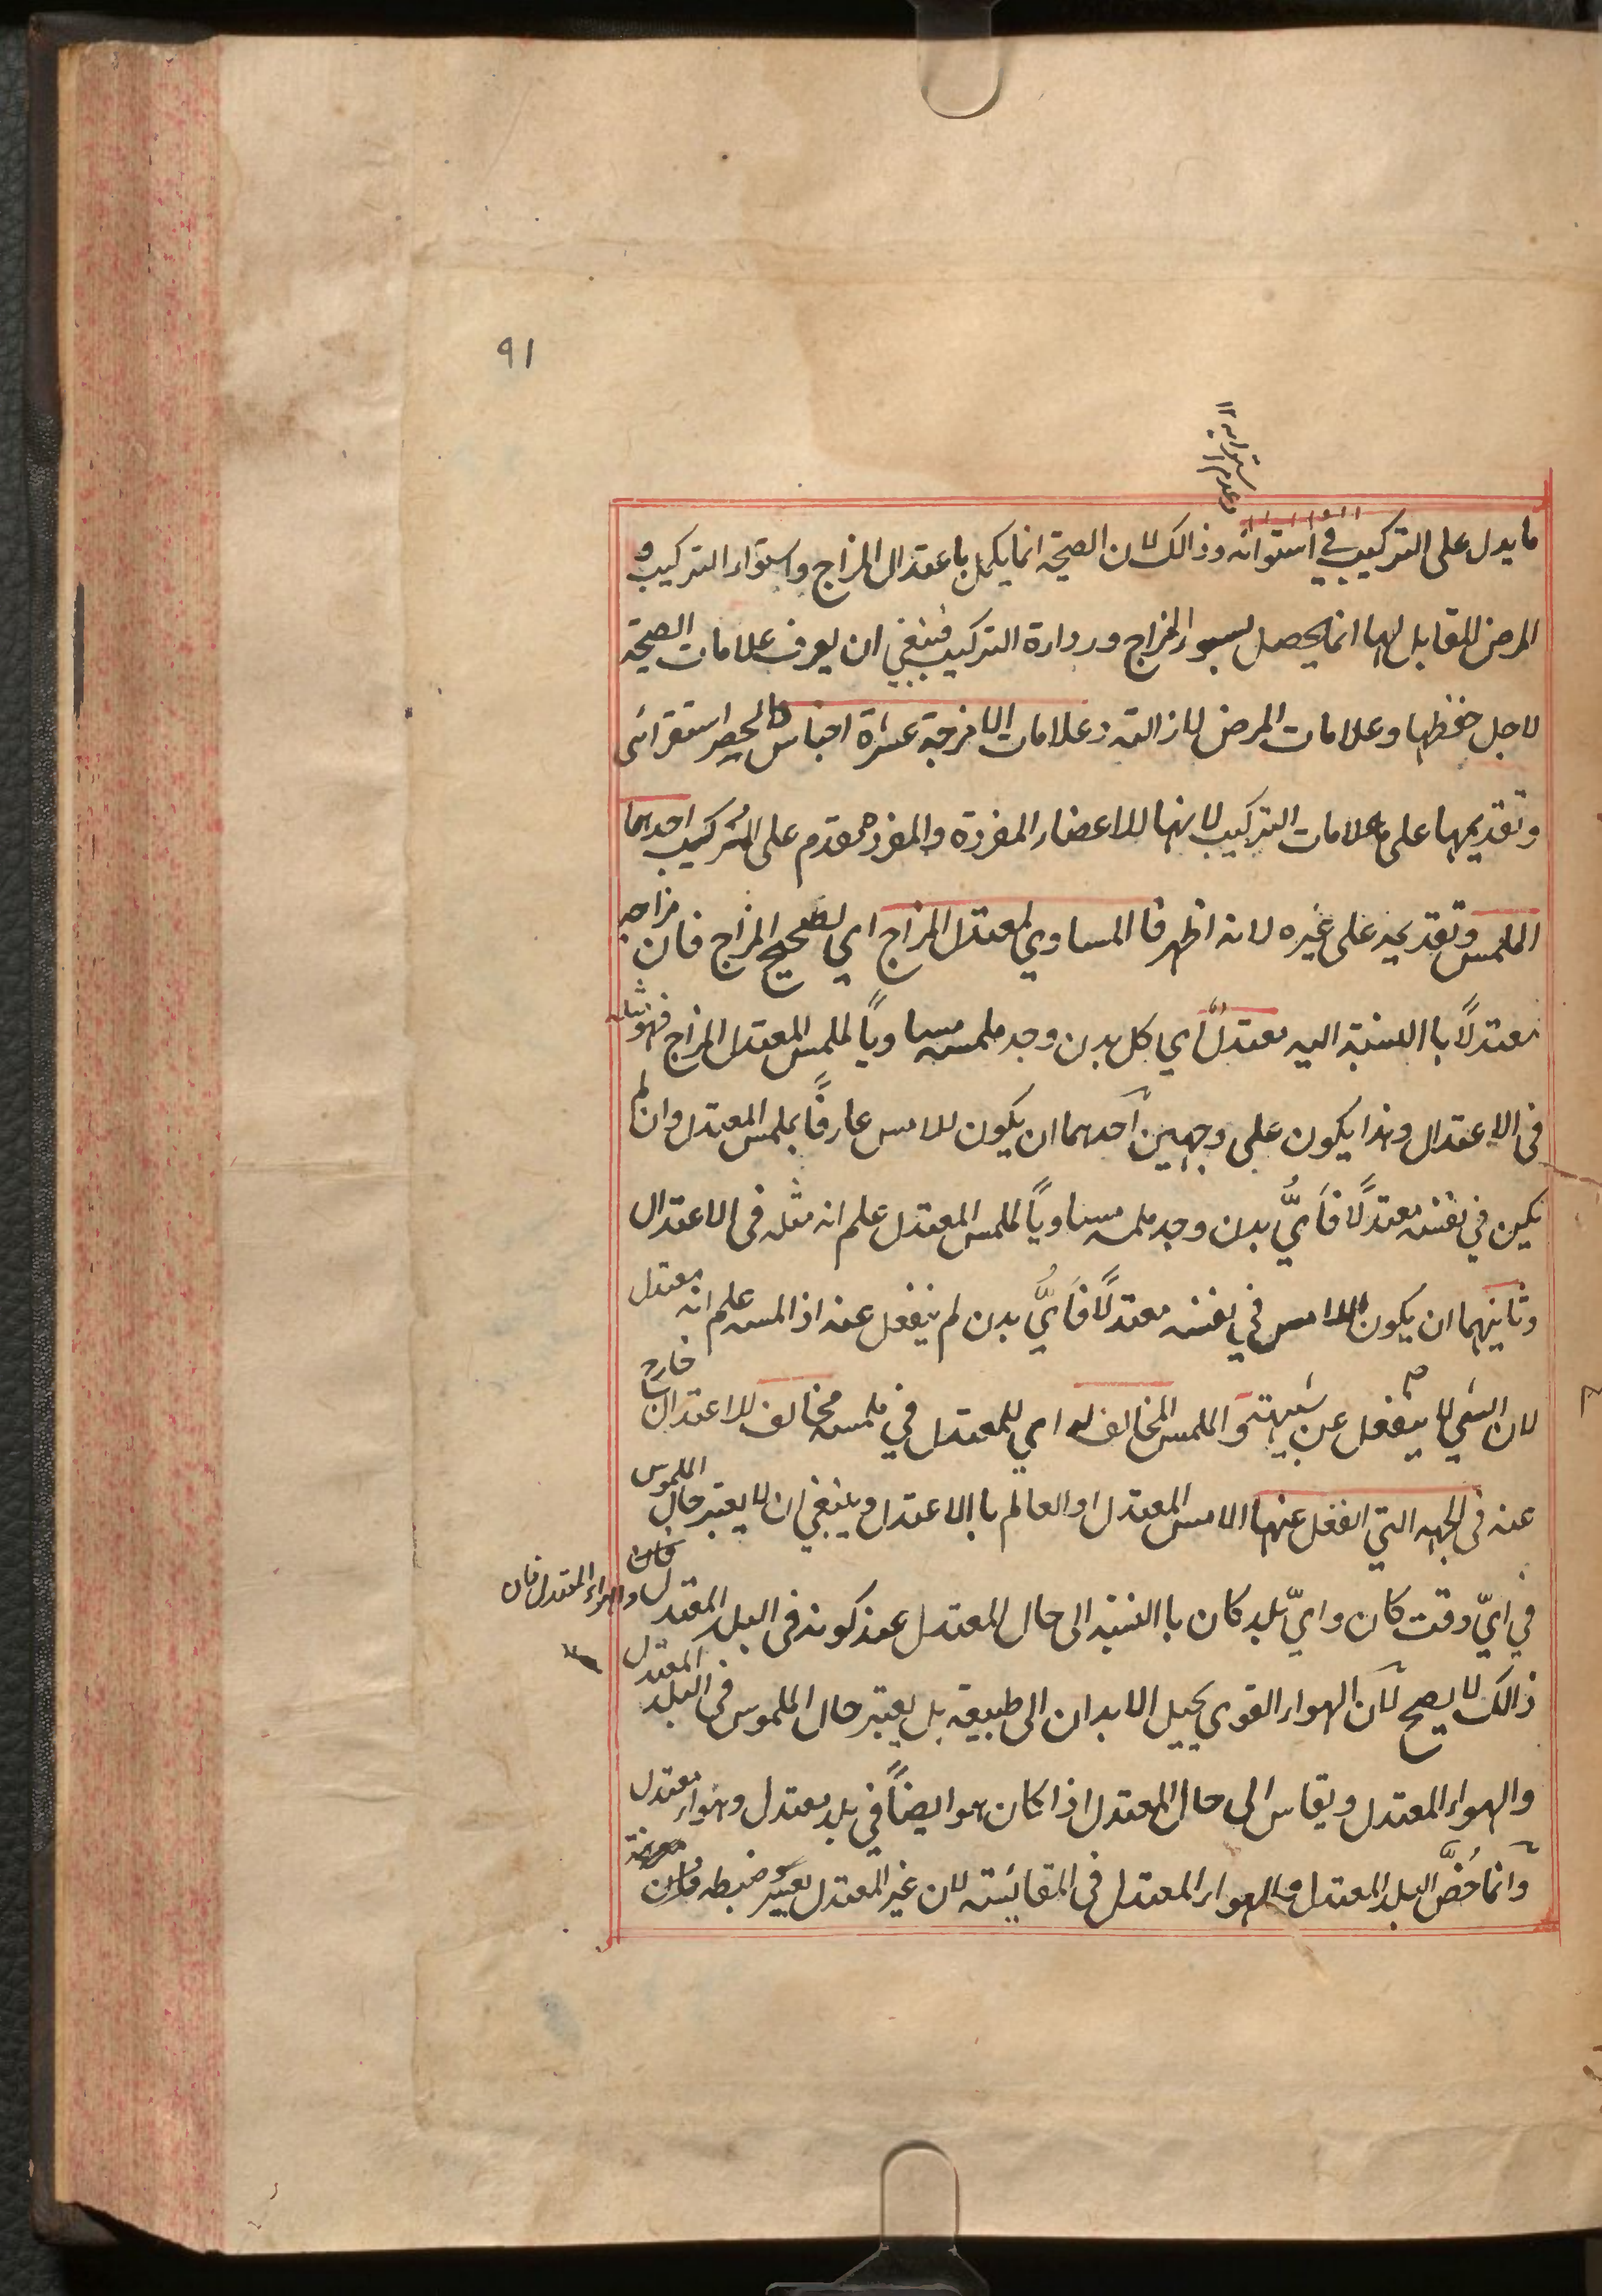 91
وعدم استوايه ۱۲
ما يدل على التركيب في استوائه وذالك لان الصحة انما يكمل باعتدال المزاج واستواء التركيب و
المرض المقابل لهما انما يحصل بسوء المزاج وردارة التركيب فينبغي ان يعرف علامات الصحة
لاجل حفظها وعلامات المرض لازالته وعلامات الامزجة عشرة اجناس الحصر استقرائى
وتقديمها على علامات التركيب لانها للاعضاء المفردة والمفرد مقدم على المركب احدها
الملمس وتقديمه على غيره لانه اظهر فالمساوي لمعتدل المزاج اي لصحيح المزاج فان مزاجه
معتدلاً باالنسبة اليه معتدل اي كل بدن وجد ملمسه مساوياً لملمس المعتدل المزاج فهو مثله
فى الاعتدال وهذا يكون على وجهين احدهما ان يكون للامس عارفاً بملمس المعتدل وان لم
يكن في نفسه معتدلاً فأيُّ بدن وجد ملمسه مساوياً لملمس المعتدل علم انه مثله فى الاعتدال
وثانيهما ان يكون اللامس في نفسه معتدلاً فأيُّ بدن لم ينفعل عنه اذا لمسه علم انه معتدل
لان الشي لا ينفعل عن شبيهه والملمس المخالف له اي للمعتدل في ملمسه مخالف للاعتدال خارج
عنه فى الجهه التي انفعل عنها الامس المعتدل او العالم باالاعتدال وينبغي ان لا يعتبر حال الملموس
في ايّ وقت كان وايّ بلد كان باالنسبة الى حال المعتدل عند كونه فى البلد المعتدل والهواء المعتدل فان
ذالك لا يصح لان الهواء القوى يحيل الابدان الى طبيعته بل يعتبر حال الملموس فى البلد المعتدل
والهواء المعتدل ويقاس الى حال المعتدل اذا كان هو ايضاً في بلد معتدل وهواء معتدل
وانما خُصَّ البلد المعتدل والهواء المعتدل فى المقائسة لان غير المعتدل يعسر ضبطه